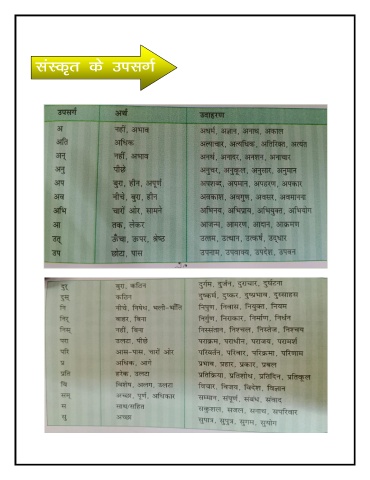 संस्कृत के उपसर्ग
उपसर्ग अर्थ उदाहरण
अ नहीं, अभाव अधर्म, अज्ञान, अनाथ, अकाल
अति अधिक अत्याचार, अत्यधिक, अतिरिक्त, अत्यंत
अन् नहीं, अभाव अनर्थ, अनादर, अनशन, अनाचार
अनु पीछे अनुचर, अनुकूल, अनुसार, अनुमान
अप बुरा, हीन, अपूर्ण अपशब्द, अपमान, अपहरण, अपकार
अव नीचे, बुरा, हीन अवतरण, अवगुण, अवस्था, अवमानना
अभि चारों ओर, सामने अभिनय, अभिप्राय, अभियुक्त, अभियोग
आ तक, लेकर आजन्म, आमरण, आदान, आक्रमण
उत् ऊँचा, ऊपर, श्रेष्ठ उत्तम, उत्थान, उत्कर्ष, उद्धार
उप छोटा, पास उपनाम, उपवाक्य, उपदेश, उपवन
दुर् बुरा, कठिन दुर्गम, दुर्जन, दुराचार, दुर्घटना
दुस् कठिन दुष्कर्म, दुष्कर, दुष्प्रभाव, दुस्साहस
नि नीचे, निषेध, भली-भाँति निपुण, निवास, नियुक्त, नियम
निर् बाहर, बिना निर्गुण, निराकार, निर्माण, निर्धन
निस् नहीं, बिना निस्संतान, निश्चल, निस्तेज, निश्चय
परा उलटा, पीछे पराक्रम, पराधीन, पराजय, परामर्श
परि आस-पास, चारों ओर परिवर्तन, परिवार, परिक्रमा, परिणाम
प्र अधिक, आगे प्रभाव, प्रहार, प्रकार, प्रबल
प्रति हरेक, उलटा प्रतिक्रिया, प्रतिशोध, प्रतिदिन, प्रतिकूल
वि विशेष, अलग, उलटा विचार, विजय, विदेश, विज्ञान
सम् अच्छा, पूर्ण, अधिकार सम्मान, संपूर्ण, संबंध, संवाद
स साथ/सहित सकुशल, सजल, सनाथ, सपरिवार
सु अच्छा सुपात्र, सुपुत्र, सुगम, सुयोग